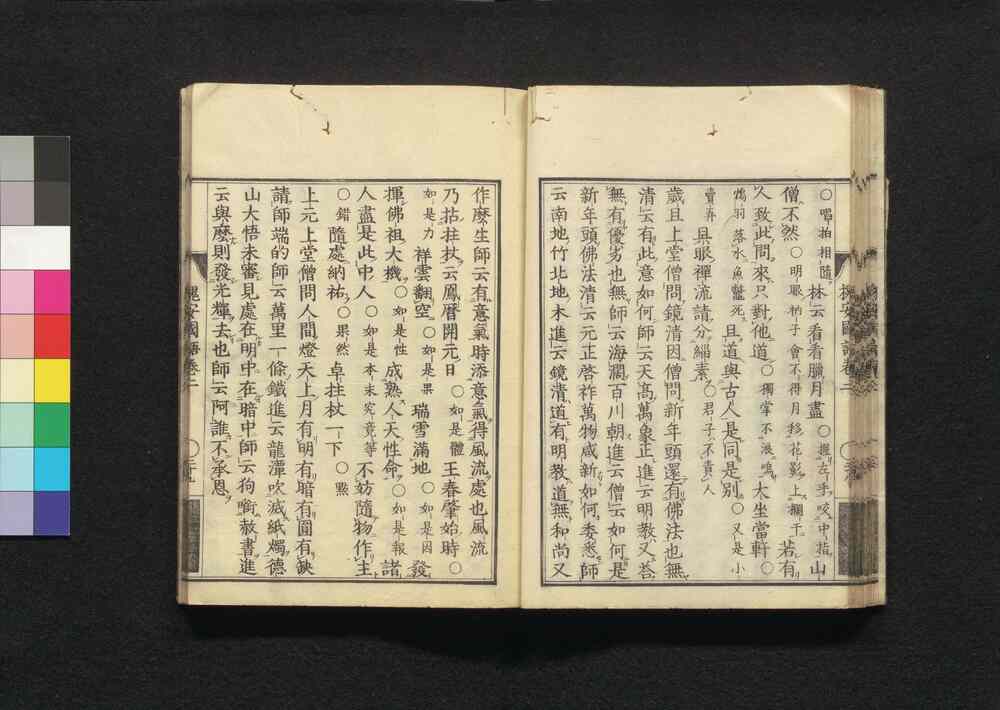 ○唱拍相隨林云看看臘月盡○握左手咬中指山
僧不然○明眼衲子會不得月移花影上欄干若有
久致此問來只對他道○獨掌不浪鳴大坐當軒○
鴆羽落水魚鼈死且道與古人是同是別○又是小
賣弄具眼禪流請分緇素○君子不責人
歲旦上堂僧問鏡清因僧問新年頭還有佛法也無
清云有此意如何師云天高萬象正進云明教又荅
無有優劣也無師云海濶百川朝進云僧云如何是
新年頭佛法清云元正啓祚萬物咸新如何委悉師
云南地竹北地木進云鏡清道有明教道無和尚又
槐安國語卷二
作麼生師云有意氣時添意氣得風流處也風流
乃拈拄杖云鳳曆開元日○如是體王春肇始時○
如是力祥雲翻空○如是果瑞雪滿地○如是因發
揮佛祖大機○如是性成熟人天性命○如是報諸
人盡是此中人○如是本末究竟等不妨隨物作主
○錯隨處納祐○果然卓拄杖一下○㸃
上元上堂僧問人間燈天上月有明有暗有圓有缺
請師端的師云萬里一條鐵進云龍潭吹滅紙燭德
山大悟未審見處在明中在暗中師云狗銜赦書進
云與麼則發光輝去也師云阿誰不承恩
槐安國語卷二